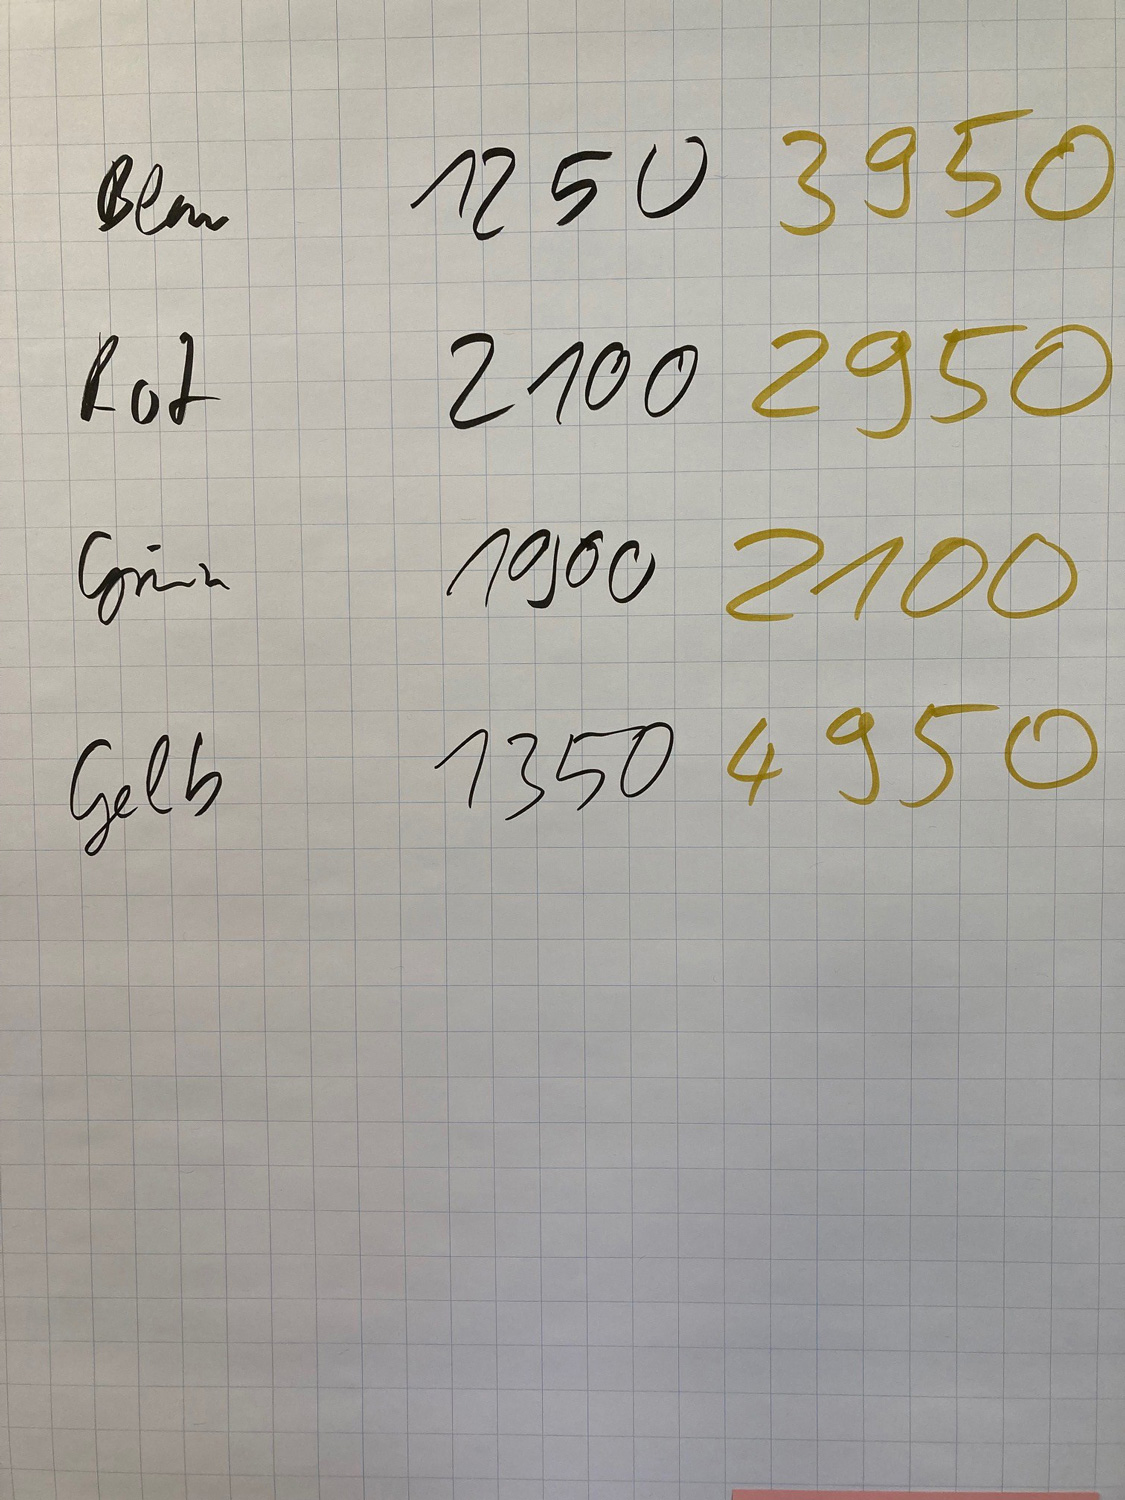 Blau 1250 3950
Rot 2100 2950
Grün 1900 2100
Gelb 1350 4950